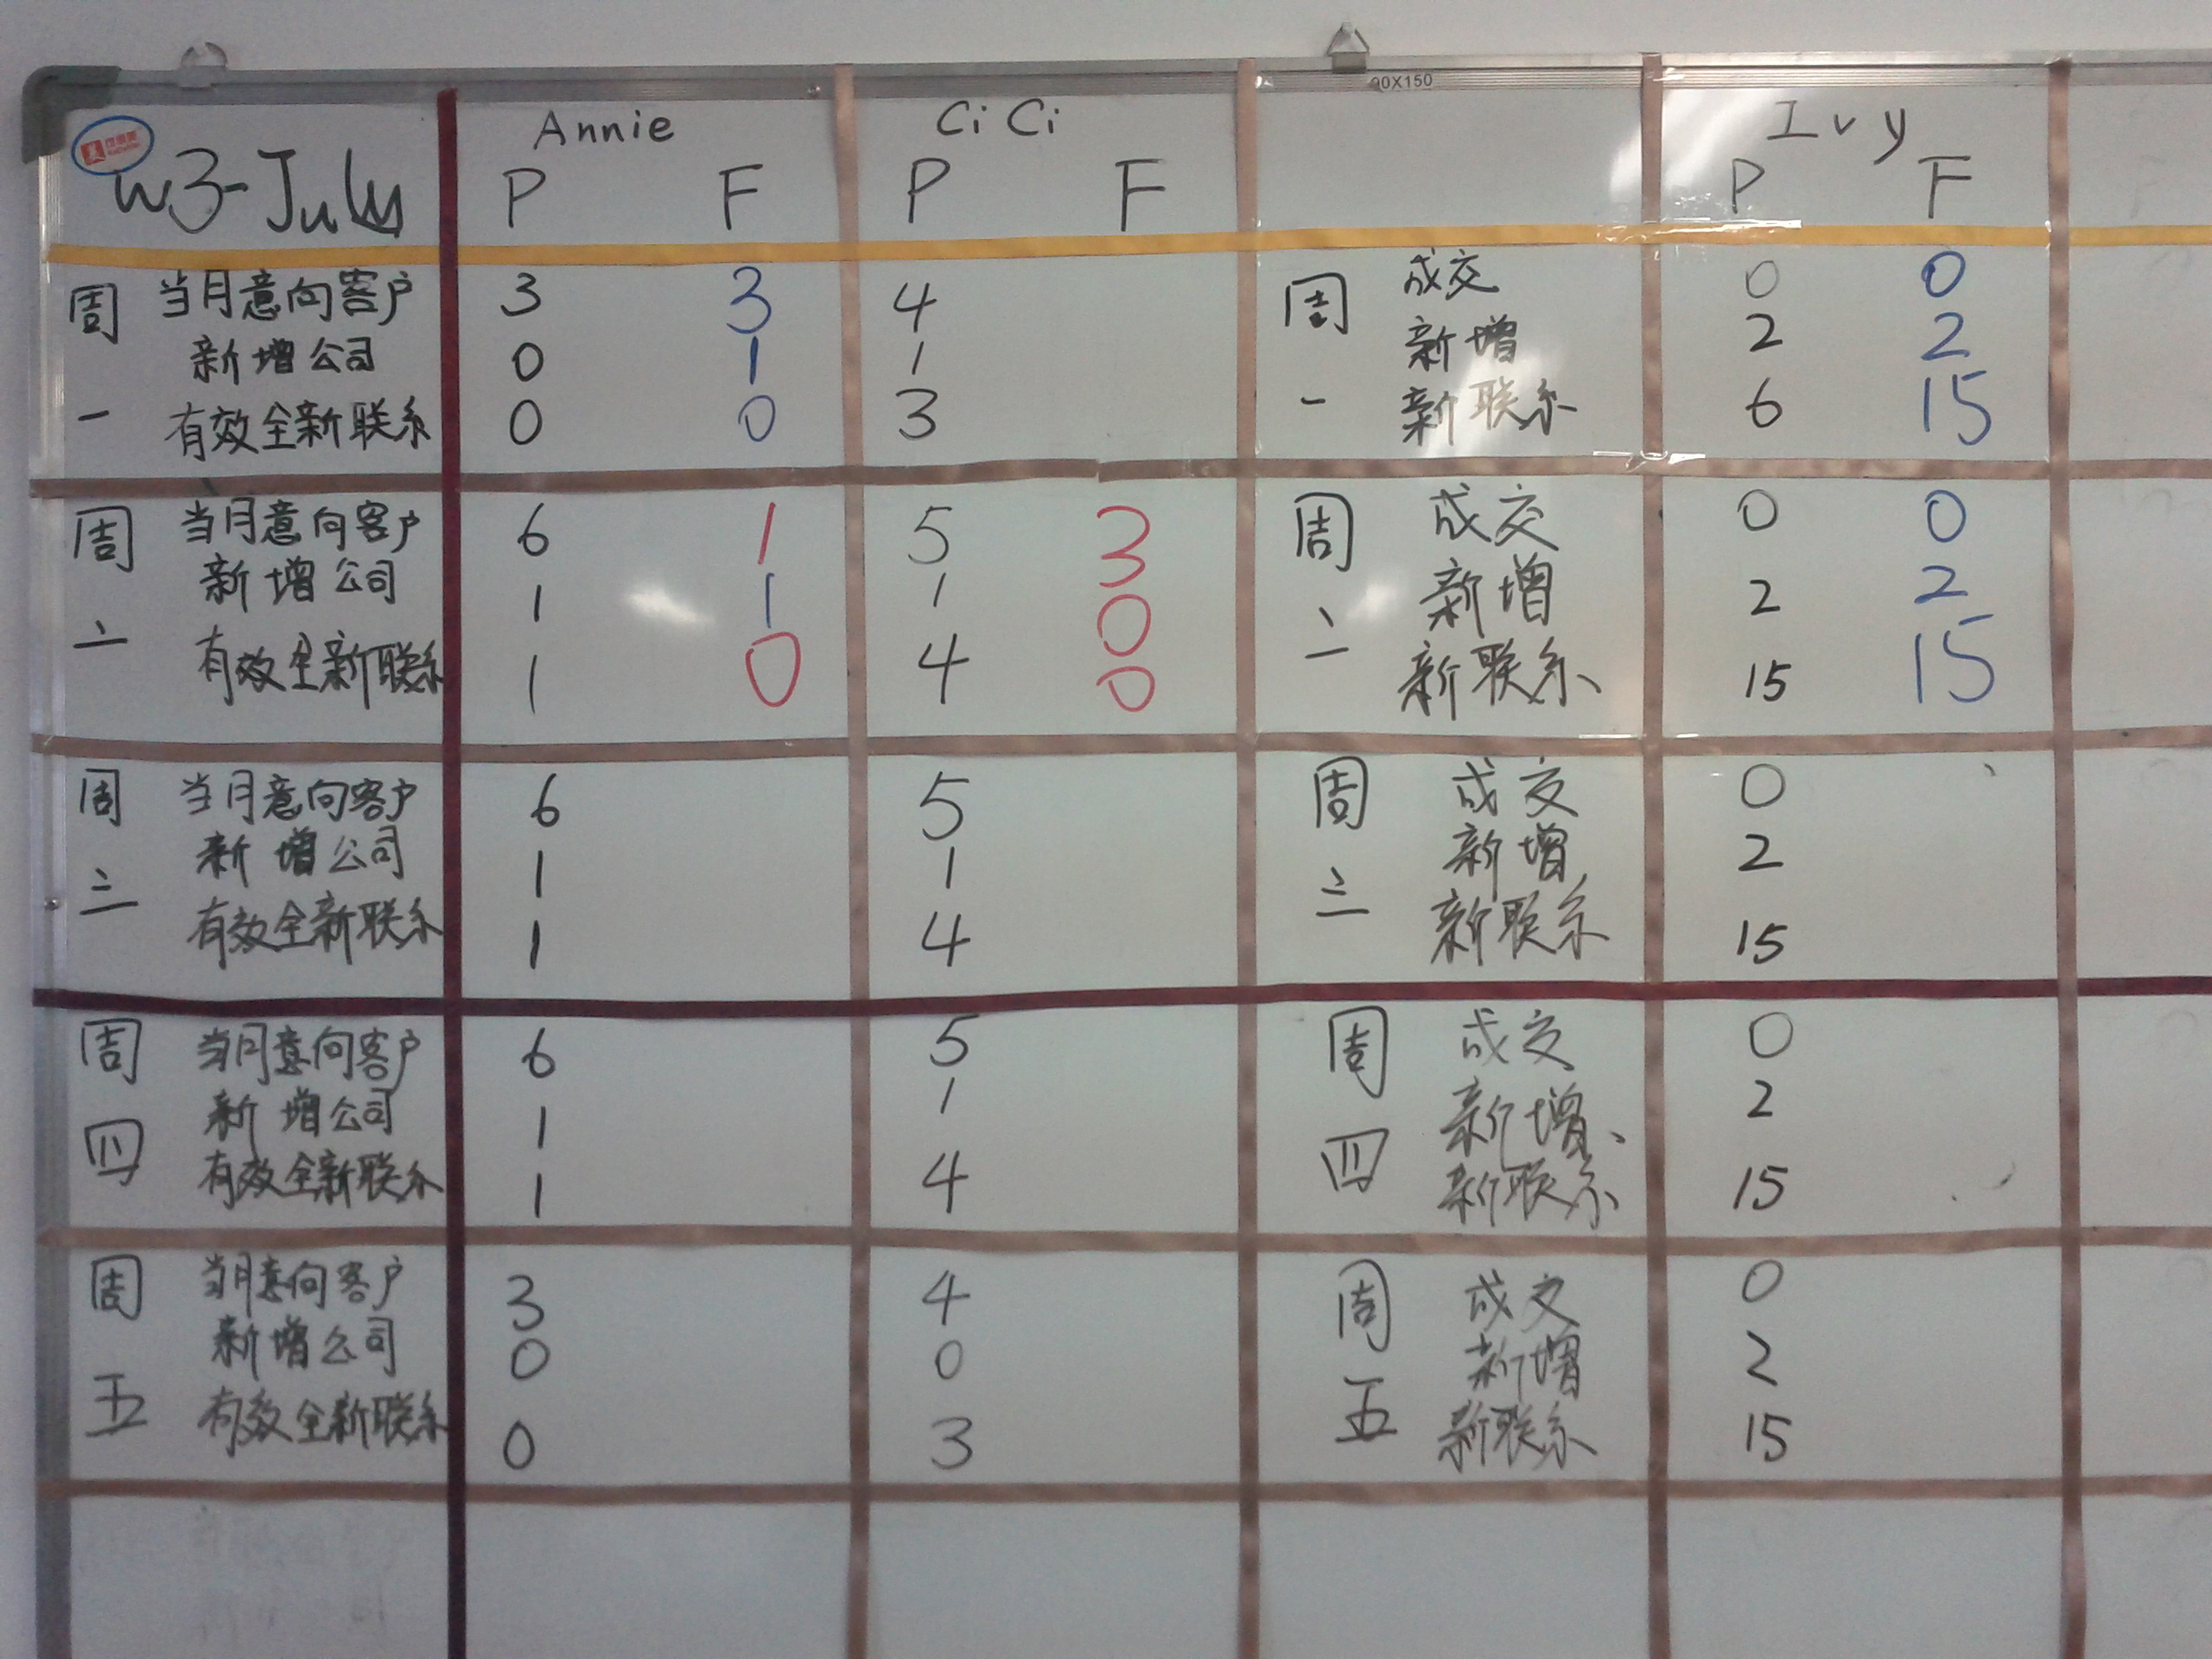 90X150
Annie CiCi Ivy
W3-July P F P F P F
周一 当月意向客户 3 3 4 周一 成交 0 0
新增公司 0 1 1 新增 2 2
有效全新联系 0 0 3 新联系 6 15
周二 当月意向客户 6 1 5 3 周二 成交 0 0
新增公司 1 1 1 0 新增 2 2
有效全新联系 1 0 4 0 新联系 15 15
周三 当月意向客户 6 5 周三 成交 0
新增公司 1 1 新增 2
有效全新联系 1 4 新联系 15
周四 当月意向客户 6 5 周四 成交 0
新增公司 1 1 新增 2
有效全新联系 1 4 新联系 15
周五 当月意向客户 3 4 周五 成交 0
新增公司 0 0 新增 2
有效全新联系 0 3 新联系 15